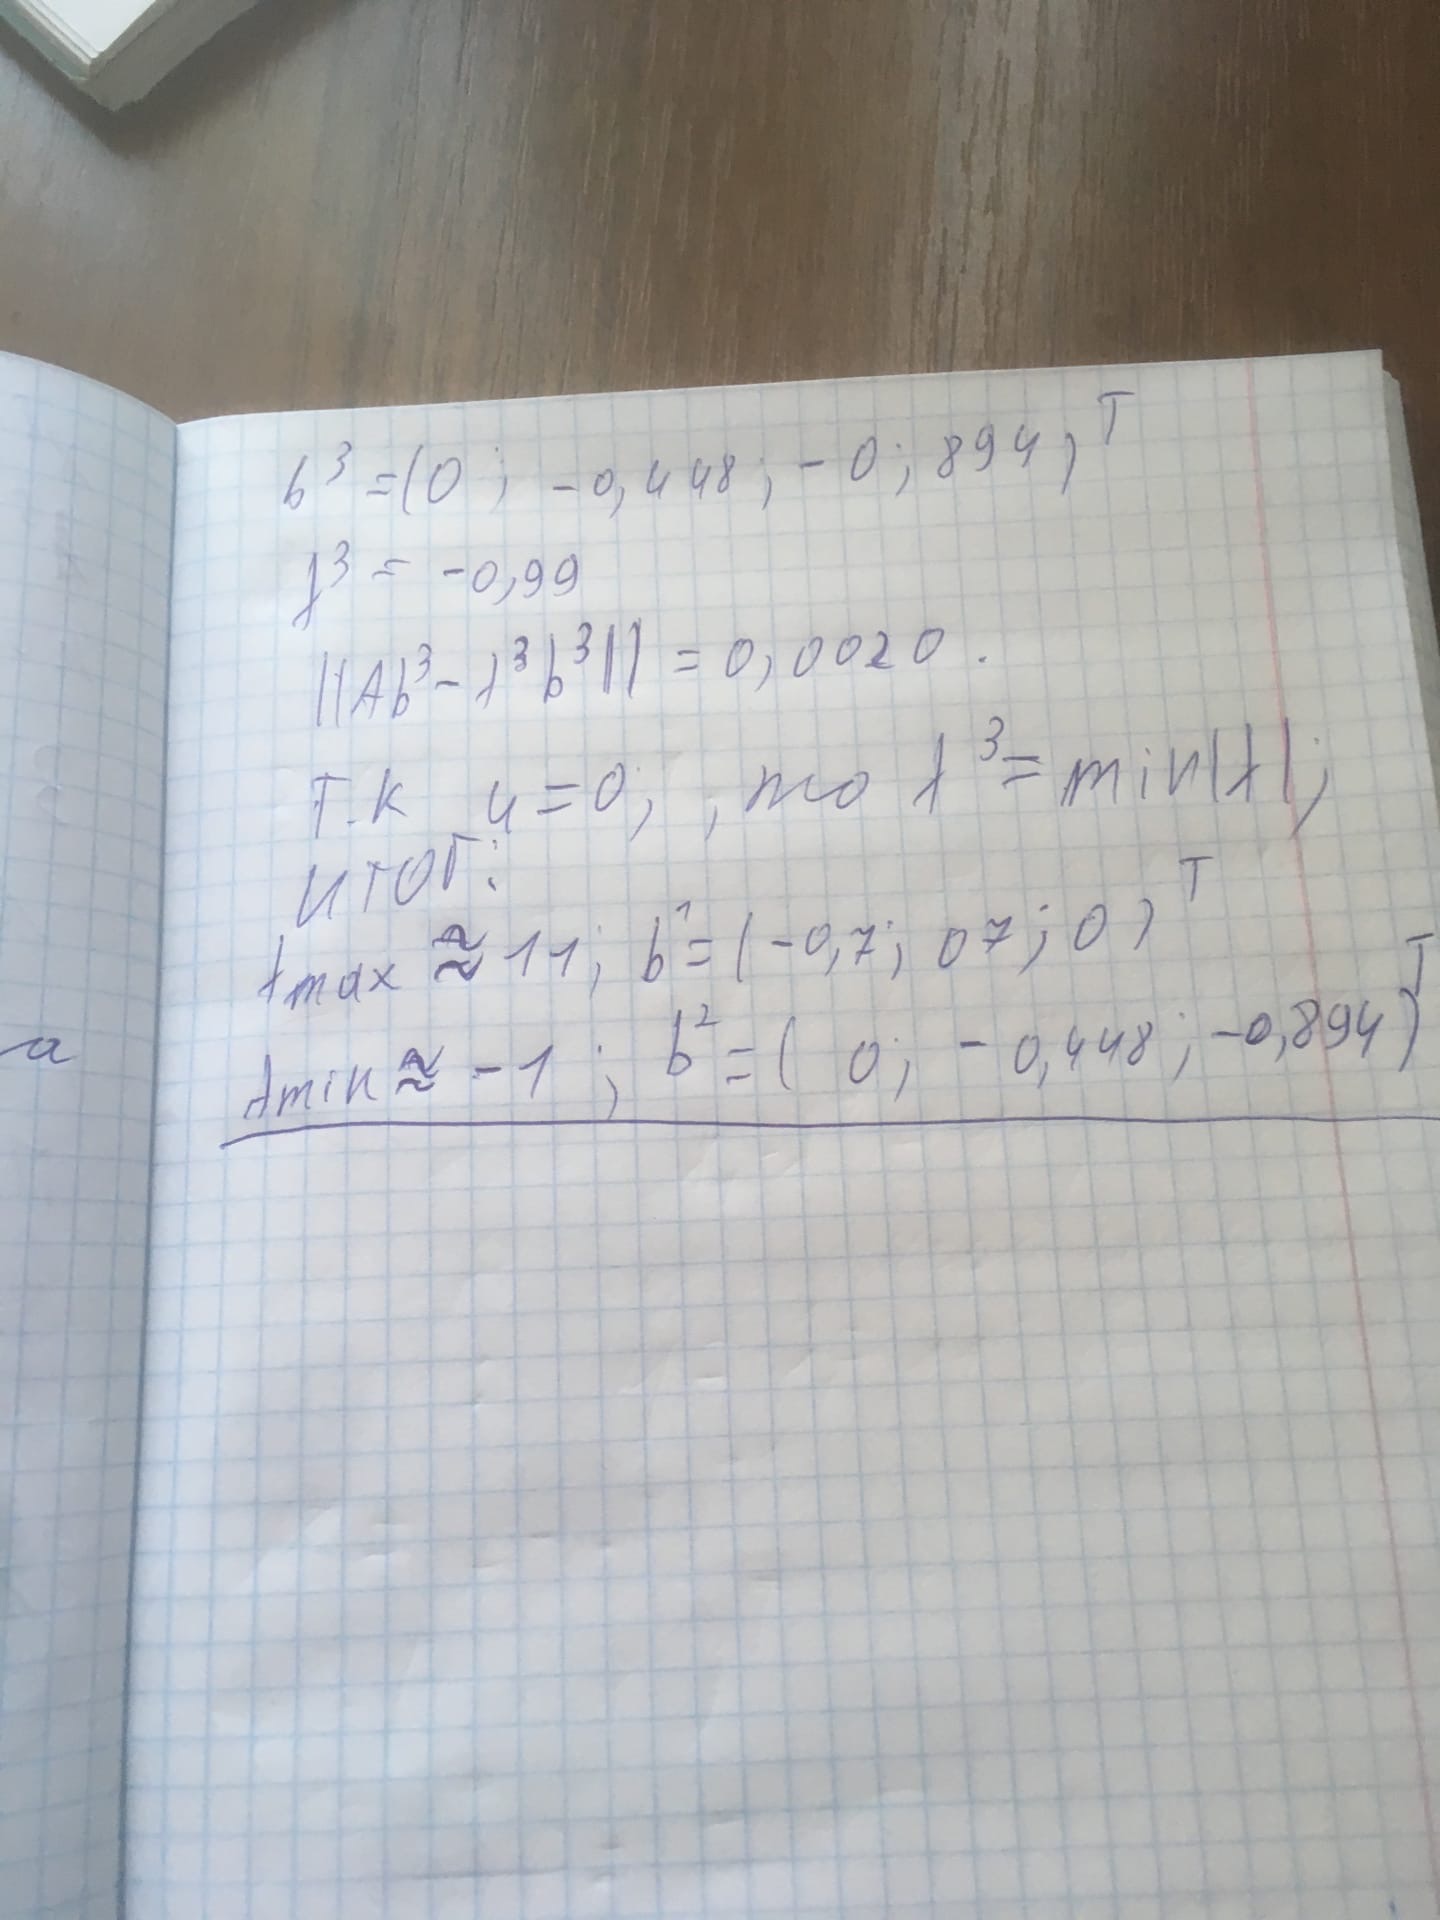 b³ = (0; -0,448; -0; 894)ᵀ
λ³ = -0,99
||Ab³ - λ³b³|| = 0,0020.
Т.К u = 0; , то λ³ = min|λ|;
ИТОГ:
λmax ≈ 11; b¹ = (-0,7; 07; 0)ᵀ
λmin ≈ -1; b² = ( 0; -0,448; -0,894)ᵀ
а